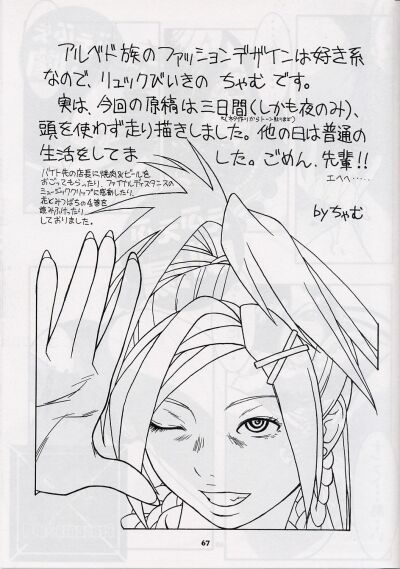 アルベド族のファッションデザインは好き系
なので、リュックびいきの ちゃむ です。
実は、今回の原稿は三日間(しかも夜のみ)、
頭を使わず走り描きしました。他の日は普通の
生活をしてま した。ごめん、先輩!!
エヘヘ……
バイト先の店長に焼肉&ビールを
おごってもらったり、ファイナルディスタンスの
ミュージッククリップに感動したり、
花とみつばちの4巻を
読みふけったり
しておりました。
byちゃむ
67